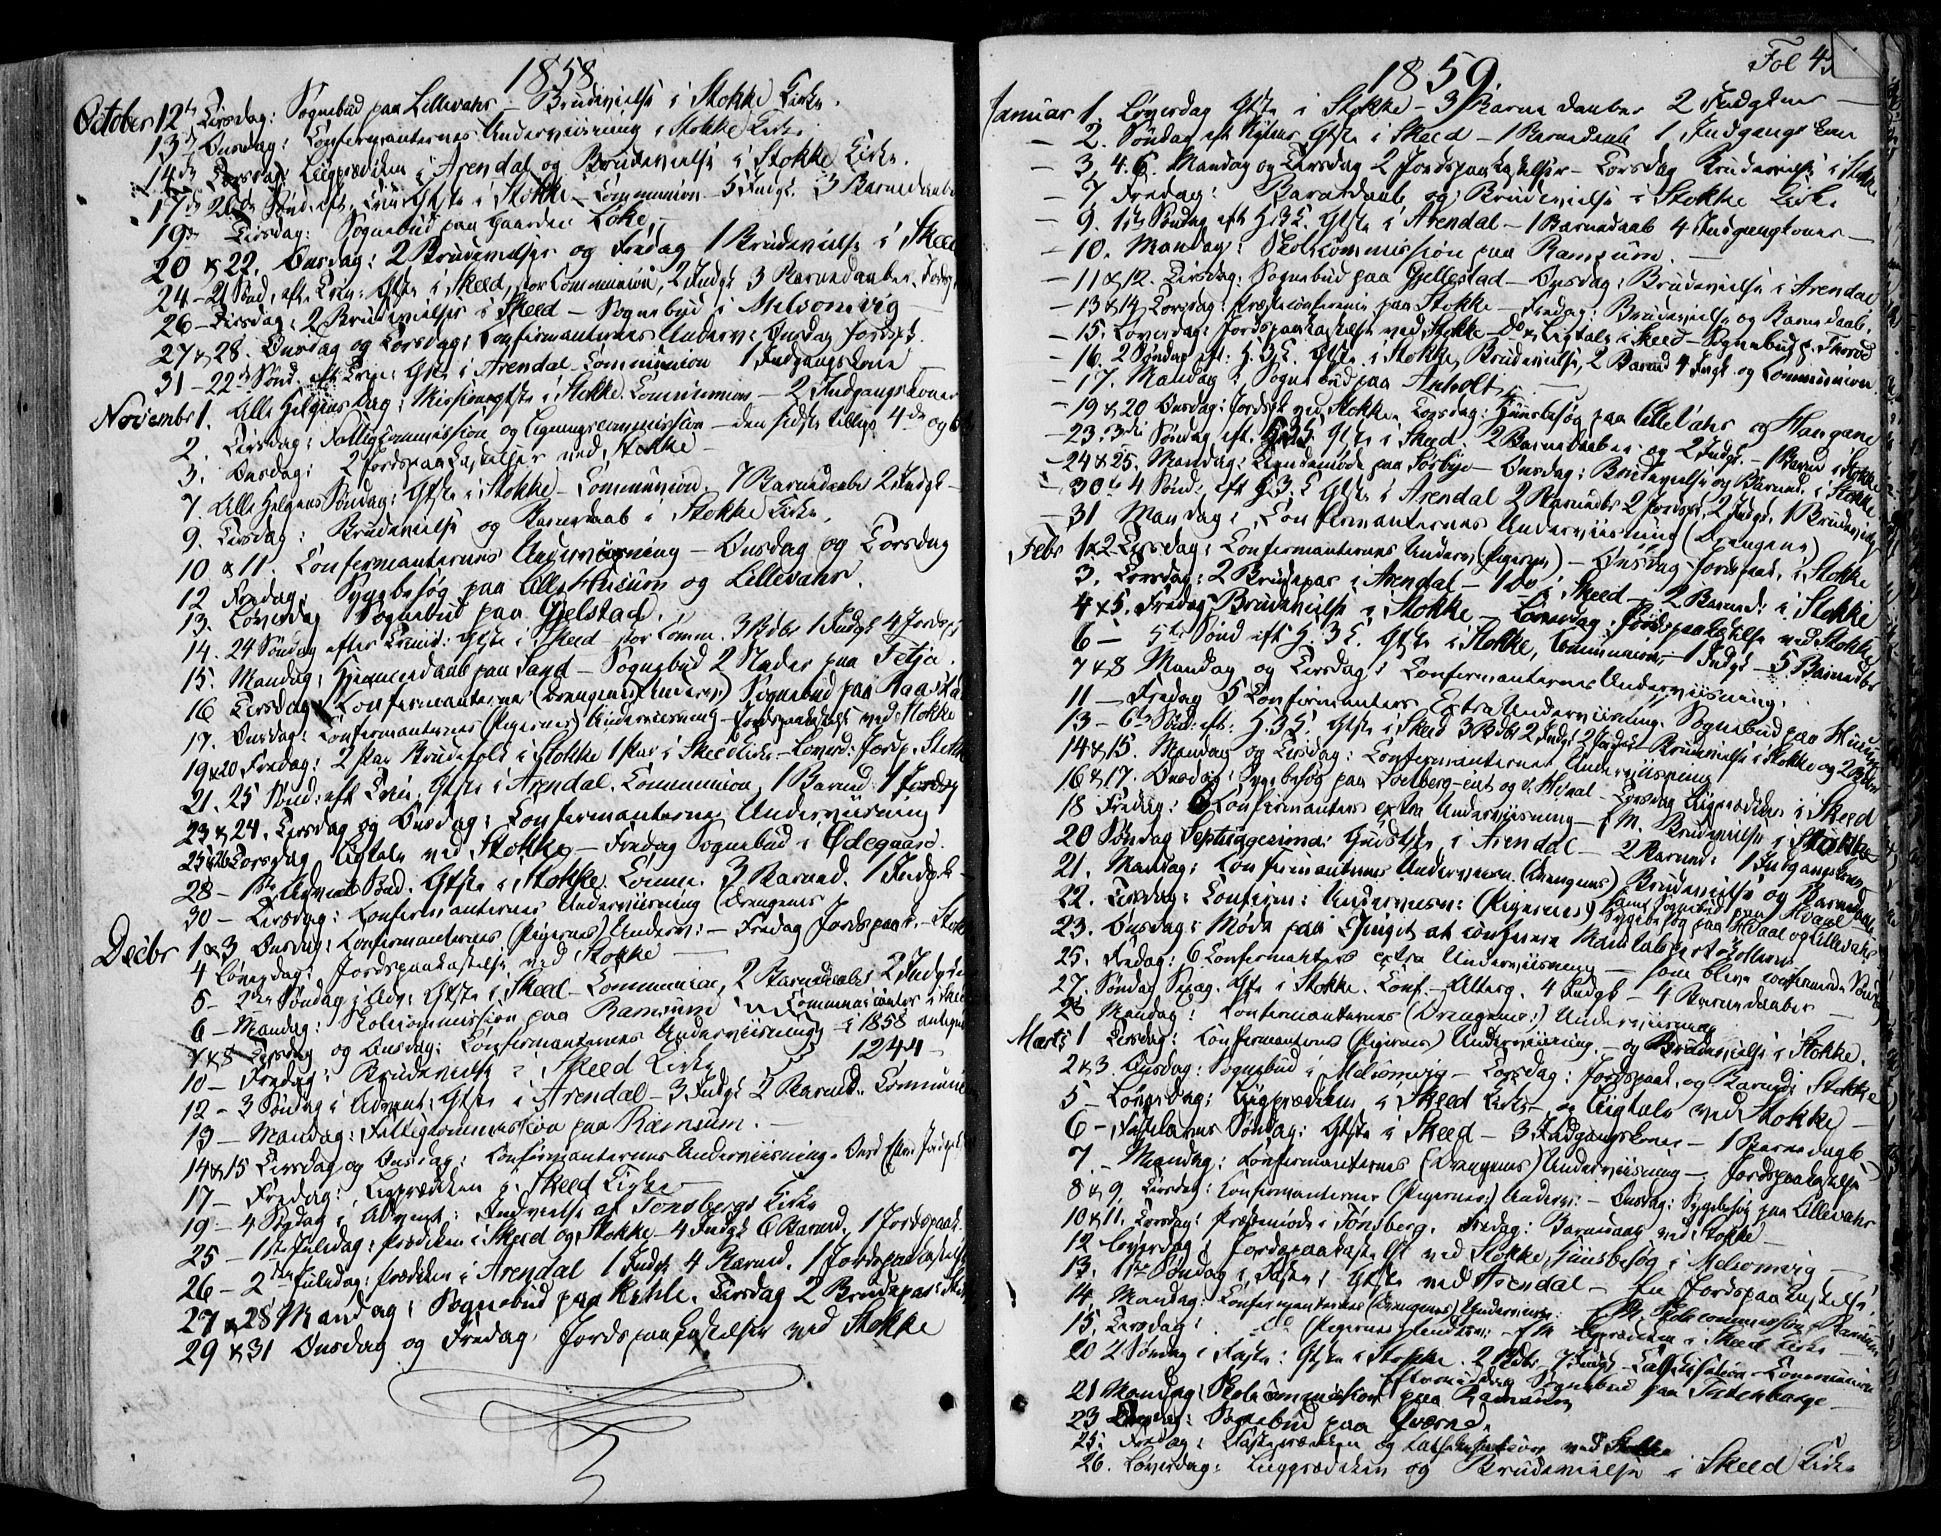 1858
October 12te Tirsdag: Sognebud paa Lillevahr – Brudevielse i Stokke Kirke.
13de Onsdag: Confirmanternes Underviisning i Stokke Kirke
14de Torsdag: Liigprædiken i Arendal og Brudevielse i Stokke Kirke.
17de 20de Sønd: eft. Trin: Gtste i Stokke – Communion 5 Indgk 3 Barnedaabe
19de Tirsdag: Sognebud paa Gaarden
20 & 22. Onsdag: 2 Brudevielser og Fredag 1 Brudevielse i Skeed
24 – 21 Sønd: efter Trin: Gtste i Skeed, stor Communion, 2 Indgk 3 Barnedaaber.
26 – Tirsdag: 2 Brudevielser i Skeed – Sognebud i Melsomvig –
27 & 28. Onsdag og Torsdag: Confirmanternes Underv: Onsdag Jordspk.
31 – 22de Sønd. eft Trin: Gtste i Arendal – Communion 1 Indgangskone
Novembr 1. Alle Helgens Dag: Missionsgtste i Stokke. Communion – 2 Indgangskoner
2. Tirsdag: Fattigcommission og Ligningscommission – den sidste tillige 4de og
3. Onsdag: 2 Jordspaakastelser ved Stokke –
7 Alle Helgens Søndag: Gtste i Stokke – Communion. 7 Barnedaabe 2 Indgk –
9. Tirsdag: Brudevielse og Barnedaab i Stokke Kirke.
10 & 11. Confirmanternes Underviisning – Onsdag og Torsdag
12 Fredag: Sygebesøg paa Lille Husum og Lillevahr.
13. Løverdag Sognebud paa Gjelstad.
14. 24 Søndag efter Trinit: Gtste i Skeed – stor Comm. 3 Bdbs 1 Indgk 4 Jordspk
15. Mandag: Hjemmedaab paa Sand – Sognebud 2 Stæder paa Fetja.
16 Tirsdag: Confirmanternes (Drengenes) Underv: Sognebud paa
17. Onsdag: Confirmanternes (Pigernes) Underviisning – Jordspaakastelse ved Stokke
19 & 20 Fredag: 2 Par Brudefolk i Stokke 1 Par i Skeed Kirke – Løverd: Jordsp. Stokke
21. 25 Sønd: eft Trin. Gtste i Arendal. Communion 1 Barned: 1 Jordsp
23 & 24. Tirsdag og Onsdag: Confirmanternes Underviisning
25 & 26 Torsdag Ligtale ved Stokke – Fredag Sognebud i Ødegaard.
28 – 1ste Advents Sønd. Gtste i Stokke. Comm. 3 Barned. 1 Indgk –
30 – Tirsdag: Confirmanternes Underviisning (Drengenes
Decbr 1 & 3 Onsdag: Confirmanternes (Pigernes) Underv: – Fredag Jordspaak. – Stokke
4 Løverdag: Jordspaakastelse ved Stokke –
5 – 2den Søndag i Adv: Gtste i Skeed – Communion, 2 Barnedaabe 2 Indgk
6 – Mandag: Skolecommission paa Ramsum Communicanter i Skeed
7 & 8 Tirsdag og Onsdag: Confirmanternes Underviisning i 1858
1244
10 – Fredag: Brudevielse i Skeed Kirke
12 – 3 Søndag i Advent: Gtste i Arendal – 3 Indgk 5 Barned. Communion
13 – Mandag: Fattigcommission paa Ramsum. –
14 & 15 Tirsdag og Onsdag: Confirmanternes Underviisning –
17 – Fredag: Ligprædiken i Skeed Kirke –
19 – 4 Søndag i Advent: Indvielse af Tønsbergs Kirke
25 – 1ste Juledag: Prædiken i Skeed og Stokke – 4 Indgk 6 Barned. 1 Jordspaak.
26 – 2den Juledag: Prædiken i Arendal 1 Indgk 4 Barned. 1 Jordspaakastelse
27 & 28 Mandag: Sognebud paa Tirsdag 2 Brudepar i
29 & 31 Onsdag og Fredag: Jordspaakastelser ved Stokke
1859
Fol 45
Januar 1. Løverdag Gtste i Stokke – 3 Barnedaaber 2 Indgkner –
– 2. Søndag eft Nytaar Gtste i Skeed – 1 Barnedaab 1 Indgangskone
– 3, 4. 6. Mandag og Tirsdag 2 Jordspaakastelser – Torsdag Brudevielse i Stokke
– 7 Fredag: Barnedaab og Brudevielse i Stokke Kirke
– 9. 1ste Søndag eft H.3.K. Gtste i Arendal – 1 Barnedaab 4 Indgangskoner –
– 10. Mandag: Skolecommission paa Ramsum. –
– 11 & 12. Tirsdag: Sognebud paa Gjellestad – Onsdag: Brudevielse i Arendal
– 13 & 14 Torsdag: Præsteconference paa Stokke – Fredag: Brudevielse og Barnedaab.
– 15. Løverdag: Jordspaakastelse ved Stokke – do & Ligtale i Skeed – Sognebud p. Thorød
– 16. 2 Søndag eft: H.3.K. Gtste i Stokke, Brudevielse, 2 Barned 4 Indgk og Communion
– 17. Mandag: Sognebud paa Anholt. –
– 19 & 20 Onsdag: Jordspk ved Stokke. Torsdag: Huusbesøg paa Lille Vahr og Haugane
– 23. 3die Søndag eft. H.3.K. Gtste i Skeed. 2 Barnedaabe og 2 Indgk. – 1 Barned i Stokke
– 24 & 25. Mandag: paa Sørbye – Onsdag: Brudevielse og Barned. i Stokke
– 30te 4 Sønd: eft H.3.K Gtste i Arendal 2 Barnedbs 2 Jordspk, 2 Indgk, 1 Brudevielse
– 31 Mandag: Confirmanternes Underviisning (Drengene)
Febr 1 & 2 Tirsdag: Confirmanternes Underv (Pigernes) – Onsdag Jordspaak. i Stokke
3. Torsdag: 2 Brudepar i Arendal – 1 do i Skeed – 2 Barned: i Stokke
4 & 5. Fredag Brudevielse i Stokke – Løverdag: Jordspaakastelse ved Stokke
6 – 5te Sønd eft H.3.K. Gtste i Stokke, Communion – 1 Indgk – 5 Barnedbs
7 & 8 Mandag og Tirsdag: Confirmanternes Underviisning.
11 – Fredag 5 Confirmanters Extra Underviisning.
13 – 6te Sønd: eft: H.3.K. Gtste i Skeed 3 Bdbs 2 Indgk Brudevielse i Stokke og 2
14 & 15. Mandag og Tirsdag: Confirmanternes Underviisning
16 & 17. Onsdag: Sygebesøg paa Solberg-eiet og i Hvaal – Torsdag Liigprædiken i Skeed
18 Fredag: 6 Confirmanters extra Underviisning – f. M. Brudevielse i Stokke
20 Søndag Septuagesima: Gudstste i Arendal – 2 Barned: 1 Indgangskone
21. Mandag: Confirmanternes Underviisn. (Drengenes) Brudevielse og Barnedaab
22. Tirsdag: Confirm: Underviisn: (Pigernes) Sygebesøg paa Hvaal og Lillevahr
23. Onsdag: Møde paa Thinget at conferere Mandtalsprotokollerne
25. Fredag: 6 Confirmanters extra Underviisning – som bleve confirmerede Sønd
27. Søndag Sexag. Gtste i Stokke. Conf. – Alterg. 4 Indgk – 4 Barnedaaber
28 Mandag: Confirmanternes (Drengenes:) Underviisning
Marts 1 Tirsdag: Confirmanternes (Pigernes) Underviisning – og Brudevielse i Stokke.
2 & 3. Onsdag: Sognebud i Melsomvig – Torsdag: Jordspaak. og Barned: Stokke
5 – Løverdag: Liigprædiken i Skeed Kirke – og Ligtale ved Stokke –
6 – Fastelavns Søndag: Gtste i Skeed – 3 Indgangskoner – 1 Barnedaab
7. – Mandag: Confirmanternes (Drengenes) Underviisning – Jordspaakastelse
8 & 9. Tirsdag: Confirmanternes (Pigernes:) Underv: – Onsdag: Sygebesøg paa Lillevahr
10 & 11. Torsdag: Præstemøde i Tønsberg. Fredag: Barnedaab ved Stokke –
12 Løverdag: Jordspaakastelse ved Stokke, Huusbesøg i Melsomvig –
13. 1ste Søndag i Faste: Gtste ved Arendal – En Jordspaakastelse.
14 Mandag: Confirmanternes (Drengenes) Underviisn: E. M. Skolecommission Ramsum
15. Tirsdag: do (Pigernes) Underv: – f M Ligprædiken i Skeed Kirke –
20 2 Søndag i Faste: Gtste i Stokke. 2 Bdbs, 7 Indgk – Catechisation – Communion
Eftermiddag Sognebud paa
21 Mandag: Skolecommission paa Ramsum
23 Sognebud paa Qværne.
25: Fredag: Fasteprædiken og Catechisation ved Stokke
26. Løverdag: Liigprædiken og Brudevielse i Skeed Kirke